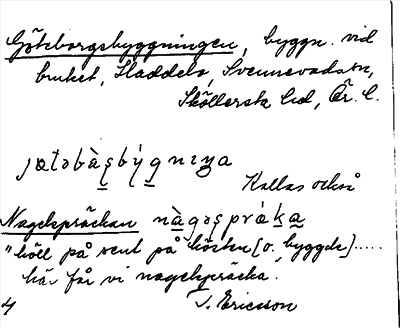 Göteborgsbyggningen, byggn. vid
bruket, Haddebo, Svennevads sn,
Sköllersta hd, Ör. l.
jœtəbàȿbýg̱nıŋa
Kallas också
Nagelspräckan nàgəȿprǽka
"höll på sent på hösten [o. byggde].....
här får vi nagelspräcka."
J. Ericsson
4